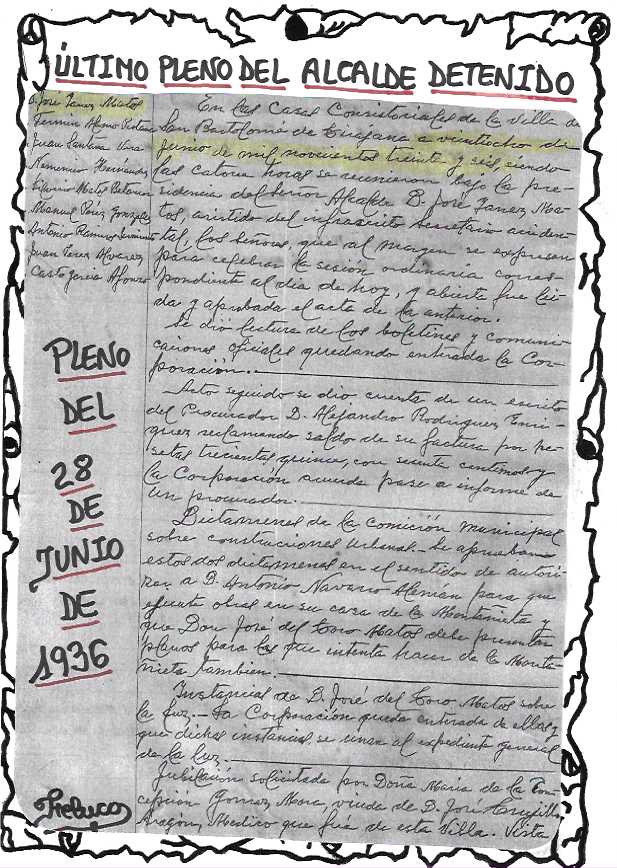 ÚLTIMO PLENO DEL ALCALDE DETENIDO
D. José Yanez Matos
Fermin Alamo Pertana
Juan Santana Vera
Nemensio Hernández
Matos
Manuel Pérez Gonzalez
Antonio Ramirez Sarmiento
Juan Perez Alvarez
Casto Garcia Afonso
PLENO
DEL
28
DE
JUNIO
DE
1936
En las Casas Consistoriales de la Villa de
San Bartolomé de Tirajana a veintiocho de
junio de mil novecientos treinta y seis, siendo
las catorce horas se reunieron bajo la pre-
sidencia del Señor Alcalde D. José Yanez Ma-
tos, asistido del infrascrito Secretario acciden-
tal, los Señores, que al margen se expresan
para celebrar la sesión ordinaria corres-
pondiente al día de hoy, y abierta fue lei-
da y aprobada el acta de la anterior.
Se dió lectura de los boletines y comuni-
caciones oficiales quedando entrada la Cor-
poración.
Acto seguido se dio cuenta de un escrito
del Procurador D. Alejandro Rodriguez Enri-
quez reclamando saldo de su factura por pe-
setas trecientas quince, con centimos y
la Corporación acuerda pase a informe de
un procurador.
Dictamenes de la Comición Municipal
sobre construciones Urbanas.- Se aprueban
estos dos dictamenes en el sentido de autori-
zar a D. Antonio Navarro Aleman para que
ejecute obras en su casa de la Montañeta y
que Don José del Toro Matos debe presentar
planos para las que intenta hacer de la Monta-
ñeta tambien.
Instancias de D. José del Toro Matos sobre
la luz.- La Corporación queda entirada de ellas y
que dichas instancias se unan al expediente general
de la luz.
Jubilación solicitada por Doña Maria de la Con-
cepcion Gomez Mora, viuda de D. José Trujillo
Aragón, Medico que fué de esta Villa. Vista